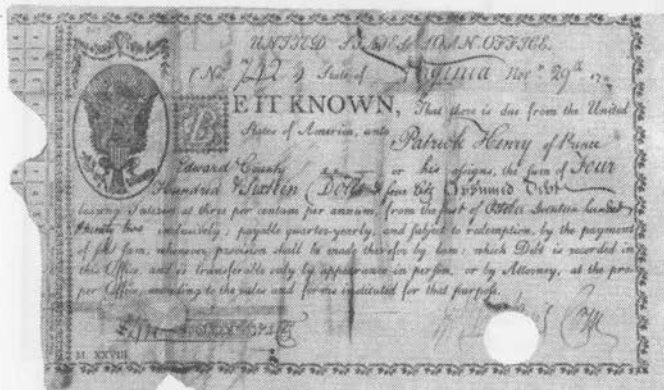 UNITED STATES LOAN OFFICE.
(No. 742) State of Virginia Novr. 29th 179
BE IT KNOWN, That there is due from the United
States of America, unto Patrick Henry of Prince
Edward County or his assigns, the sum of Four
Hundred & Sixteen Dolls & four Cts Assumed Debt
bearing Interest at three per centum per annum, from the first of October Seventeen hundred
& ninety two inclusively; payable quarter-yearly, and subject to redemption, by the payment
of said sum, whenever provision shall be made therefor by law; which Debt is recorded in
this Office, and is transferable only by appearance in person, or by Attorney, at the pro-
per Office, according to the rules and forms instituted for that purpose.
M. XXVIII